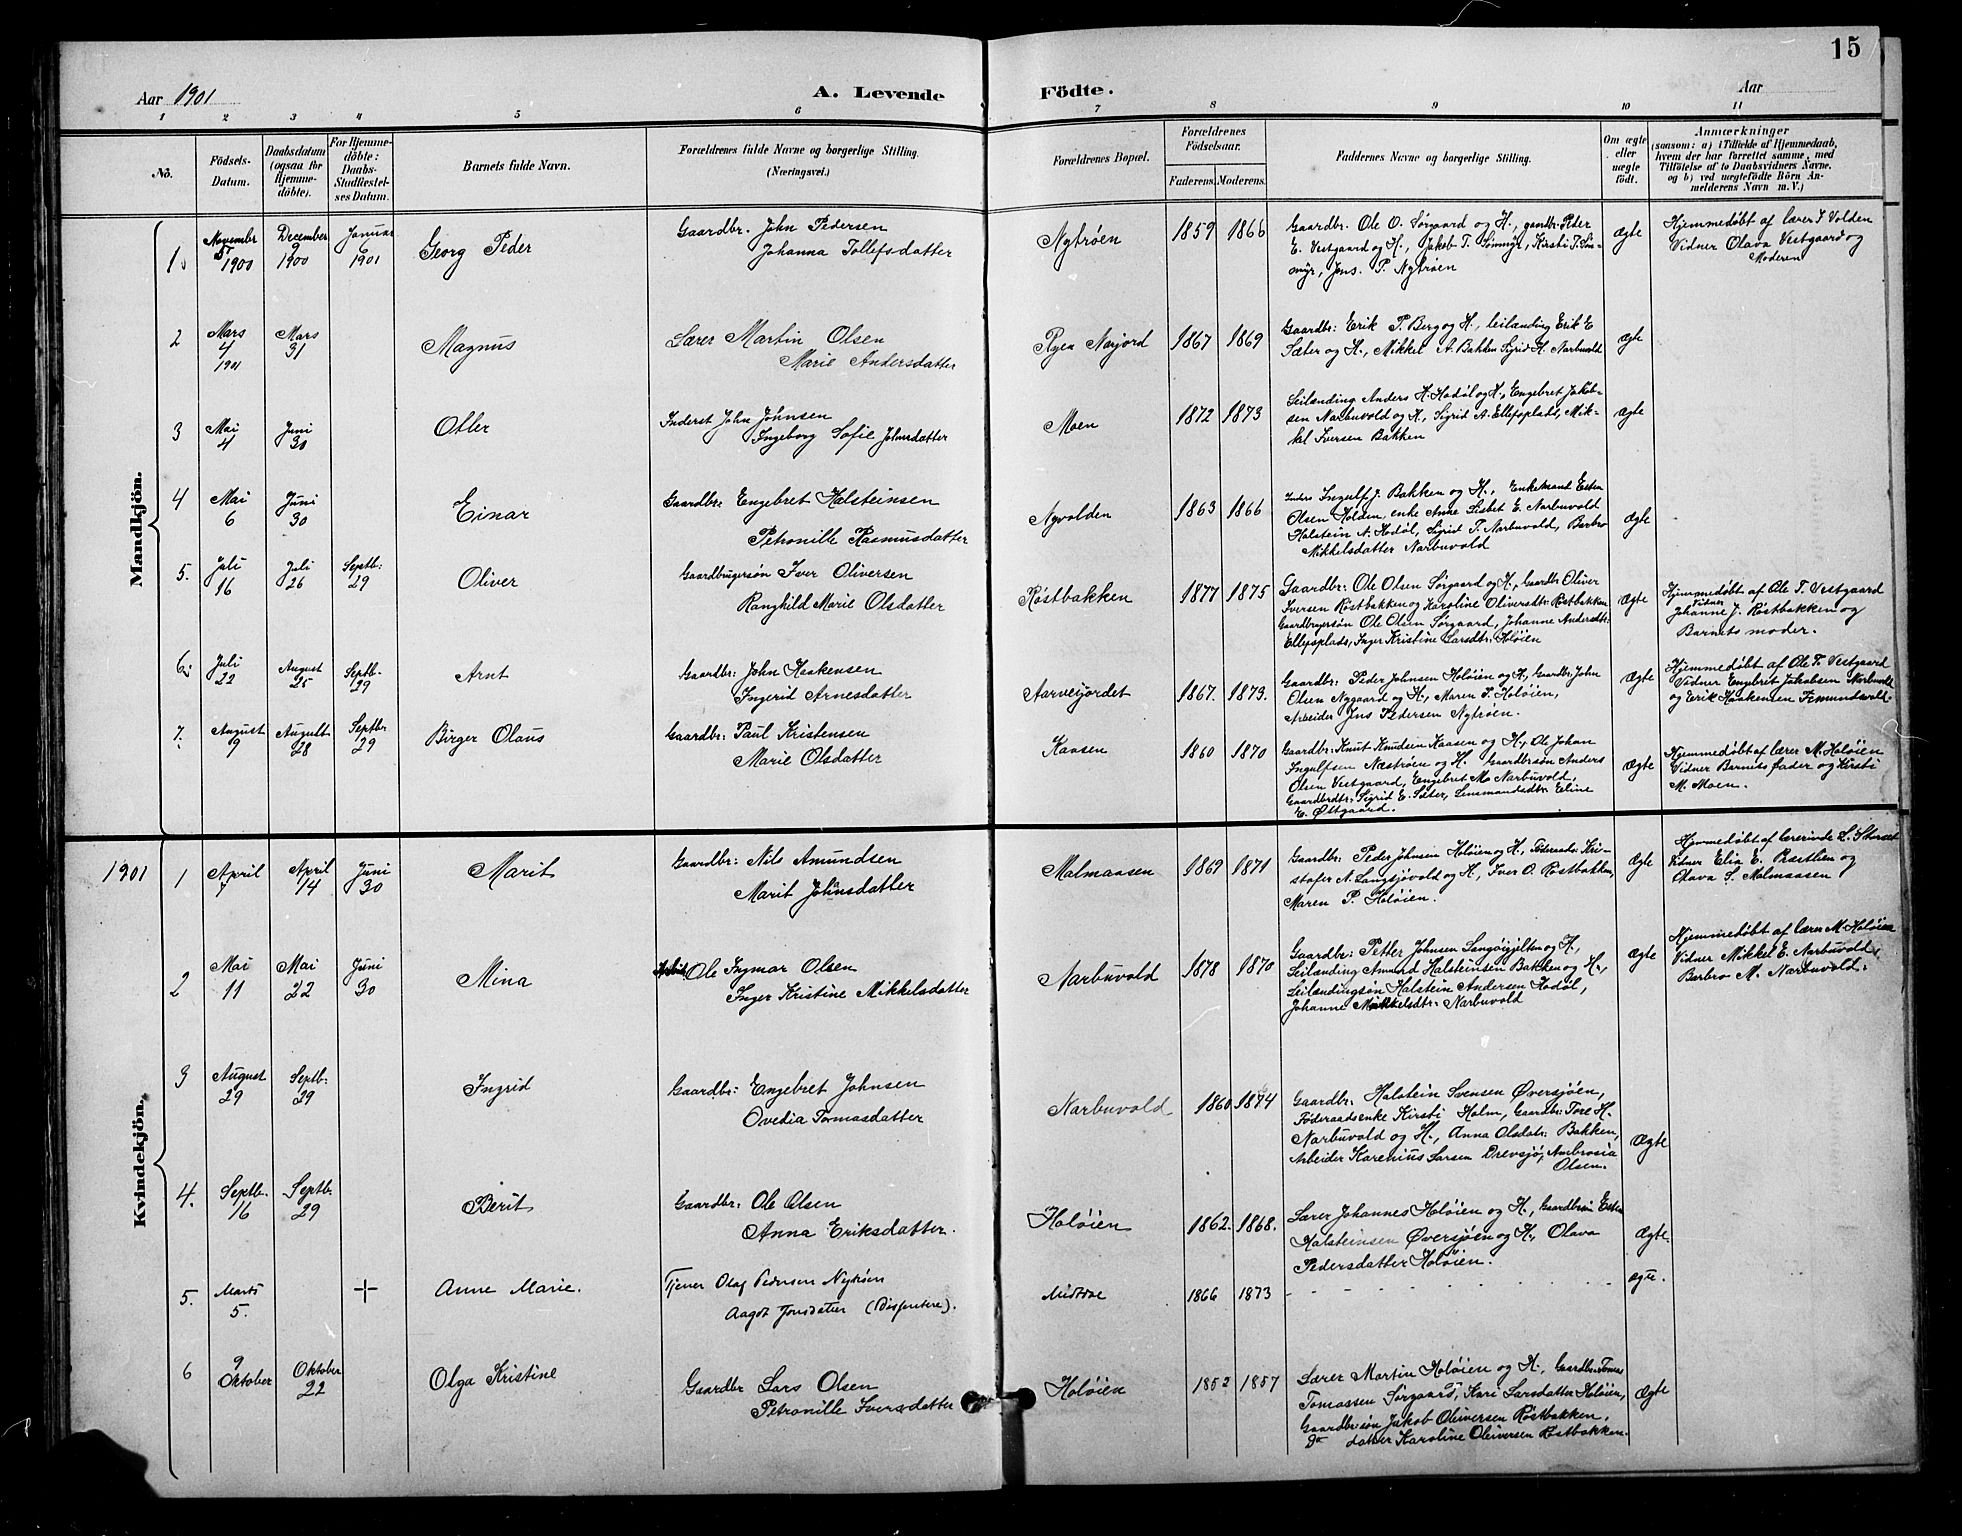 15
Aar 1901 A. Levende Födte. Aar
1 2 3 4 5 6 7 8 9 10 11
No.
Födsels-
Datum.
Daabsdatum
(ogsaa for
Hjemme-
döbte).
For Hjemme-
döbte:
Daabs-
Stadfæstel-
ses Datum.
Barnets fulde Navn.
Forældrenes fulde Navne og borgerlige Stilling.
(Næringsvei.)
Forældrenes Bopæl.
Forældrenes
Födselsaar.
Faderens. Moderens.
Faddernes Navne og borgerlige Stilling.
Om ægte
eller
uægte
födt.
Anmærkninger
(saasom: a) i Tilfælde af Hjemmedaab,
hvem der har forrettet samme, med
Tilföielse af to Daabsvidners Navne.
og b) ved uægtefödte Börn An-
melderens Navn m. V.)
Mandkjön.
1
November
5
1900
December
9
1900
Januar
6
1901
Georg Peder
Gaardbr. John Pedersen
Johanna Tollefsdatter
Nytrøen
1859 1866
Gaardbr. Ole O. Sørgaard og H., gardbr. Peder
E. Vestgaard og H., Jakob T. Sømyr, Kirsti T. Sø-
myr, Jens. P. Nytrøen
Ægte
Hjemmedøbt af lærer J Volden
Vidner Olava Vestgaard og
Moderen
2
Mars
4
1901
Mars
31
Magnus
Lærer Martin Olsen
Marie Andersdatter
Ryen Narjord
1867 1869
Gaardbr: Erik P. Berg og H., leilænding Erik E
Sæter og H., Mikkel A. Bakken Sigrid H. Narbuvold
Ægte
3
Mai
4
Juni
30
Otler
Inderst John Johnsen
Ingeborg Sofie Johnsdatter
Moen
1872 1873
Leilænding Anders H. Hodøl og H., Engebret Jakob-
sen Narbuvold og H., Sigrid A. Ellefsplads, Mik-
kel Iversen Bakken
Ægte
4
Mai
6
Juni
30
Einar
Gaardbr: Engebret Halsteinsen
Petronille Rasmusdatter
Nyvolden
1863 1866
Inders Ingulf J. Bakken og H., Enkemand Esten
Olsen Holden, enke Anne Sisbet E. Narbuvold
Halstein A. Hodøl, Sigrid T. Narbuvold, Barbro
Mikkelsdatter Narbuvold
Ægte
5.
Juli
16
Juli
26
Septb:
29
Oliver
Gaardbrugersøn Iver Oliversen
Ranghild Marie Olsdatter
Røstbakken
1877 1875
Gaardbr: Ole Olsen Sørgaard og H., Gaardbr Oliver
Iversen Røstbakken og Karoline Oliversdtr: Røstbakken
Gaardbrugersøn Ole Olsen Sørgaard, Johanne Andersdtr:
Ellefsplads, Inger Kristine Larsdtr: Holøien
Ægte
Hjemmedøbt af Ole T. Vestgaard
Vidner
Johanne J. Røstbakken og
Barnets moder.
6
Juli
22
August
25
Septb.
29
Arnt
Gaardbr: John Haakensen
Ingerid Arnesdatter
Aarveijordet
1867. 1873.
Gaardbr: Peder Johnsen Holøien og H, Gaardbr: John
Olsen Nygaard og H., Maren P. Holøien,
Arbeider Jens Pedersen Nytrøen.
Ægte
Hjemmedøbt af Ole T. Vestgaard
Vidner Engebret Jakobsen Narbuvold
og Erik Haakensen Femundsvold.
7.
August
9
August
28
Septbr
29
Birger Olaus
Gaardbr: Paul Kristensen
Marie Olsdatter
Kaasen
1860 1870
Gaardbr: Knut Knudsen Kaasen og H., Ole Johan
Ingulfsen Næstrøen og H. Gaardbrsøn Anders
Olsen Vestgaard, Engebret M. Narbuvold,
Gaardbrdtr: Sigrid E. Sæter, Lensmandsdtr: Eline
E. Østgaard.
Ægte
Hjemmedøbt af lærer M. Holøien
Vidner Barnets fader og Kirsti
M. Moen.
1901
Kvindekjön.
1
April
7
April
14
Juni
30
Marit
Gaardbr: Nils Amundsen
Marit Johnsdatter
Malmaasen
1869 1871
Gaardbr: Peder Johnsen Holøien og H., Føderaads: Kri-
stofer N. Langsjøvold og H., Iver O. Røstbakken,
Maren P. Holøien.
Ægte
Hjemmedøbt af lærerinde L. Storset
Vidner Elia E. Præstlien og
Olava S. Malmaasen
2
Mai
11
Mai
22
Juni
30
Mina
Arbeid Ole Ingmar Olsen
Inger Kristine Mikkelsdatter
Narbuvold
1878 1870
Gaardbr: Petter Johnsen Langøigjelten og H.,
Leilænding Amund Halsteinsen Bakken og H.,
Leilændingsøn Halstein Andersen Hodøl,
Johanne Mikkelsdtr: Narbuvold
Ægte
Hjemmedøbt af lærer M. Holøien
Vidner Mikkel E. Narbuvold,
Barbro M. Narbuvold.
3
August
29
Septb:
29
Ingrid
Gaardbr: Engebret Johnsen
Ovedia Tomasdatter
Narbuvold
1860 1874
Gaardbr: Halstein Svensen Øversjøen,
Føderaadsenke Kirsti Holm, Gaardbr: Tore H.
Narbuvold og H., Anna Olsdatr: Bakken,
Arbeider Karenius Larsen Drevsjø, Ambrosia
Olsen.
Ægte
4.
Septb.
16
Septb.
29
Berit
Gaardbr: Ole Olsen
Anna Eriksdatter.
Holøien
1862. 1868.
Lærer Johannes Holøien og H., Gaardbrsøn Esten
Halsteinsen Øversjøen og H., Olava
Pedersdatter Holøien.
Ægte.
5.
Marts
5.
+
Anne Marie.
Tjener Olaf Pedersen Nytrøen
Aagot Jonsdatter (Dissentere).
Midtdae
1866 1873
- - - - - - - -
Ægte.
6
9
Oktober
Oktober
22
Olga Kristine
Gaardbr Lars Olsen
Petronille Iversdatter
Holøien
1852 1857
Lærer Martin Holøien og H., Gaardbr: Tomas
Tomassen Sørgaard, Kari Larsdatter Holøien,
Gaardbr: søn Jakob Oliversen Røstbakken.
Do datter Karoline Oliversen Røstbakken.
Ægte